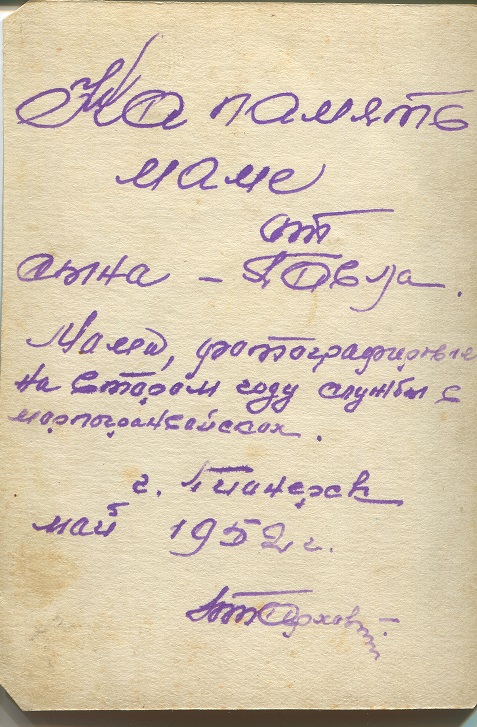 На память
маме
от
сына - Павла.
Мама, фотографировался
на втором году службы в
морпогранвойсках.
г. Пионерск
май 1952 г.